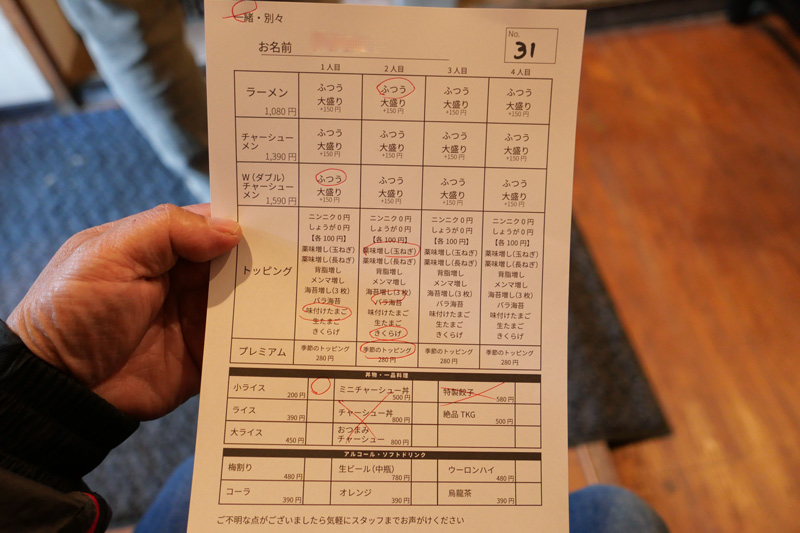 緒・別々
お名前
No.
31
1人目 2人目 3人目 4人目
ラーメン 1,080円 ふつう 大盛り +150円 ふつう 大盛り +150円 ふつう 大盛り +150円 ふつう 大盛り +150円
チャーシューメン 1,390円 ふつう 大盛り +150円 ふつう 大盛り +150円 ふつう 大盛り +150円 ふつう 大盛り +150円
W(ダブル)チャーシューメン 1,590円 ふつう 大盛り +150円 ふつう 大盛り +150円 ふつう 大盛り +150円 ふつう 大盛り +150円
トッピング
ニンニク0円 ニンニク0円 ニンニク0円 ニンニク0円
しょうが0円 しょうが0円 しょうが0円 しょうが0円
【各100円】 【各100円】 【各100円】 【各100円】
薬味増し(玉ねぎ) 薬味増し(玉ねぎ) 薬味増し(玉ねぎ) 薬味増し(玉ねぎ)
薬味増し(長ねぎ) 薬味増し(長ねぎ) 薬味増し(長ねぎ) 薬味増し(長ねぎ)
背脂増し 背脂増し 背脂増し 背脂増し
メンマ増し メンマ増し メンマ増し メンマ増し
海苔増し(3枚) 海苔増し(3枚) 海苔増し(3枚) 海苔増し(3枚)
バラ海苔 バラ海苔 バラ海苔 バラ海苔
味付けたまご 味付けたまご 味付けたまご 味付けたまご
生たまご 生たまご 生たまご 生たまご
きくらげ きくらげ きくらげ きくらげ
プレミアム 季節のトッピング 280円 季節のトッピング 280円 季節のトッピング 280円 季節のトッピング 280円
丼物・一品料理
小ライス 200円 ミニチャーシュー丼 500円 特製餃子 580円
ライス 390円 チャーシュー丼 800円 絶品TKG 500円
大ライス 450円 おつまみチャーシュー 800円
アルコール・ソフトドリンク
梅割り 480円 生ビール(中瓶) 780円 ウーロンハイ 480円
コーラ 390円 オレンジ 390円 烏龍茶 390円
ご不明な点がございましたら気軽にスタッフまでお声がけください